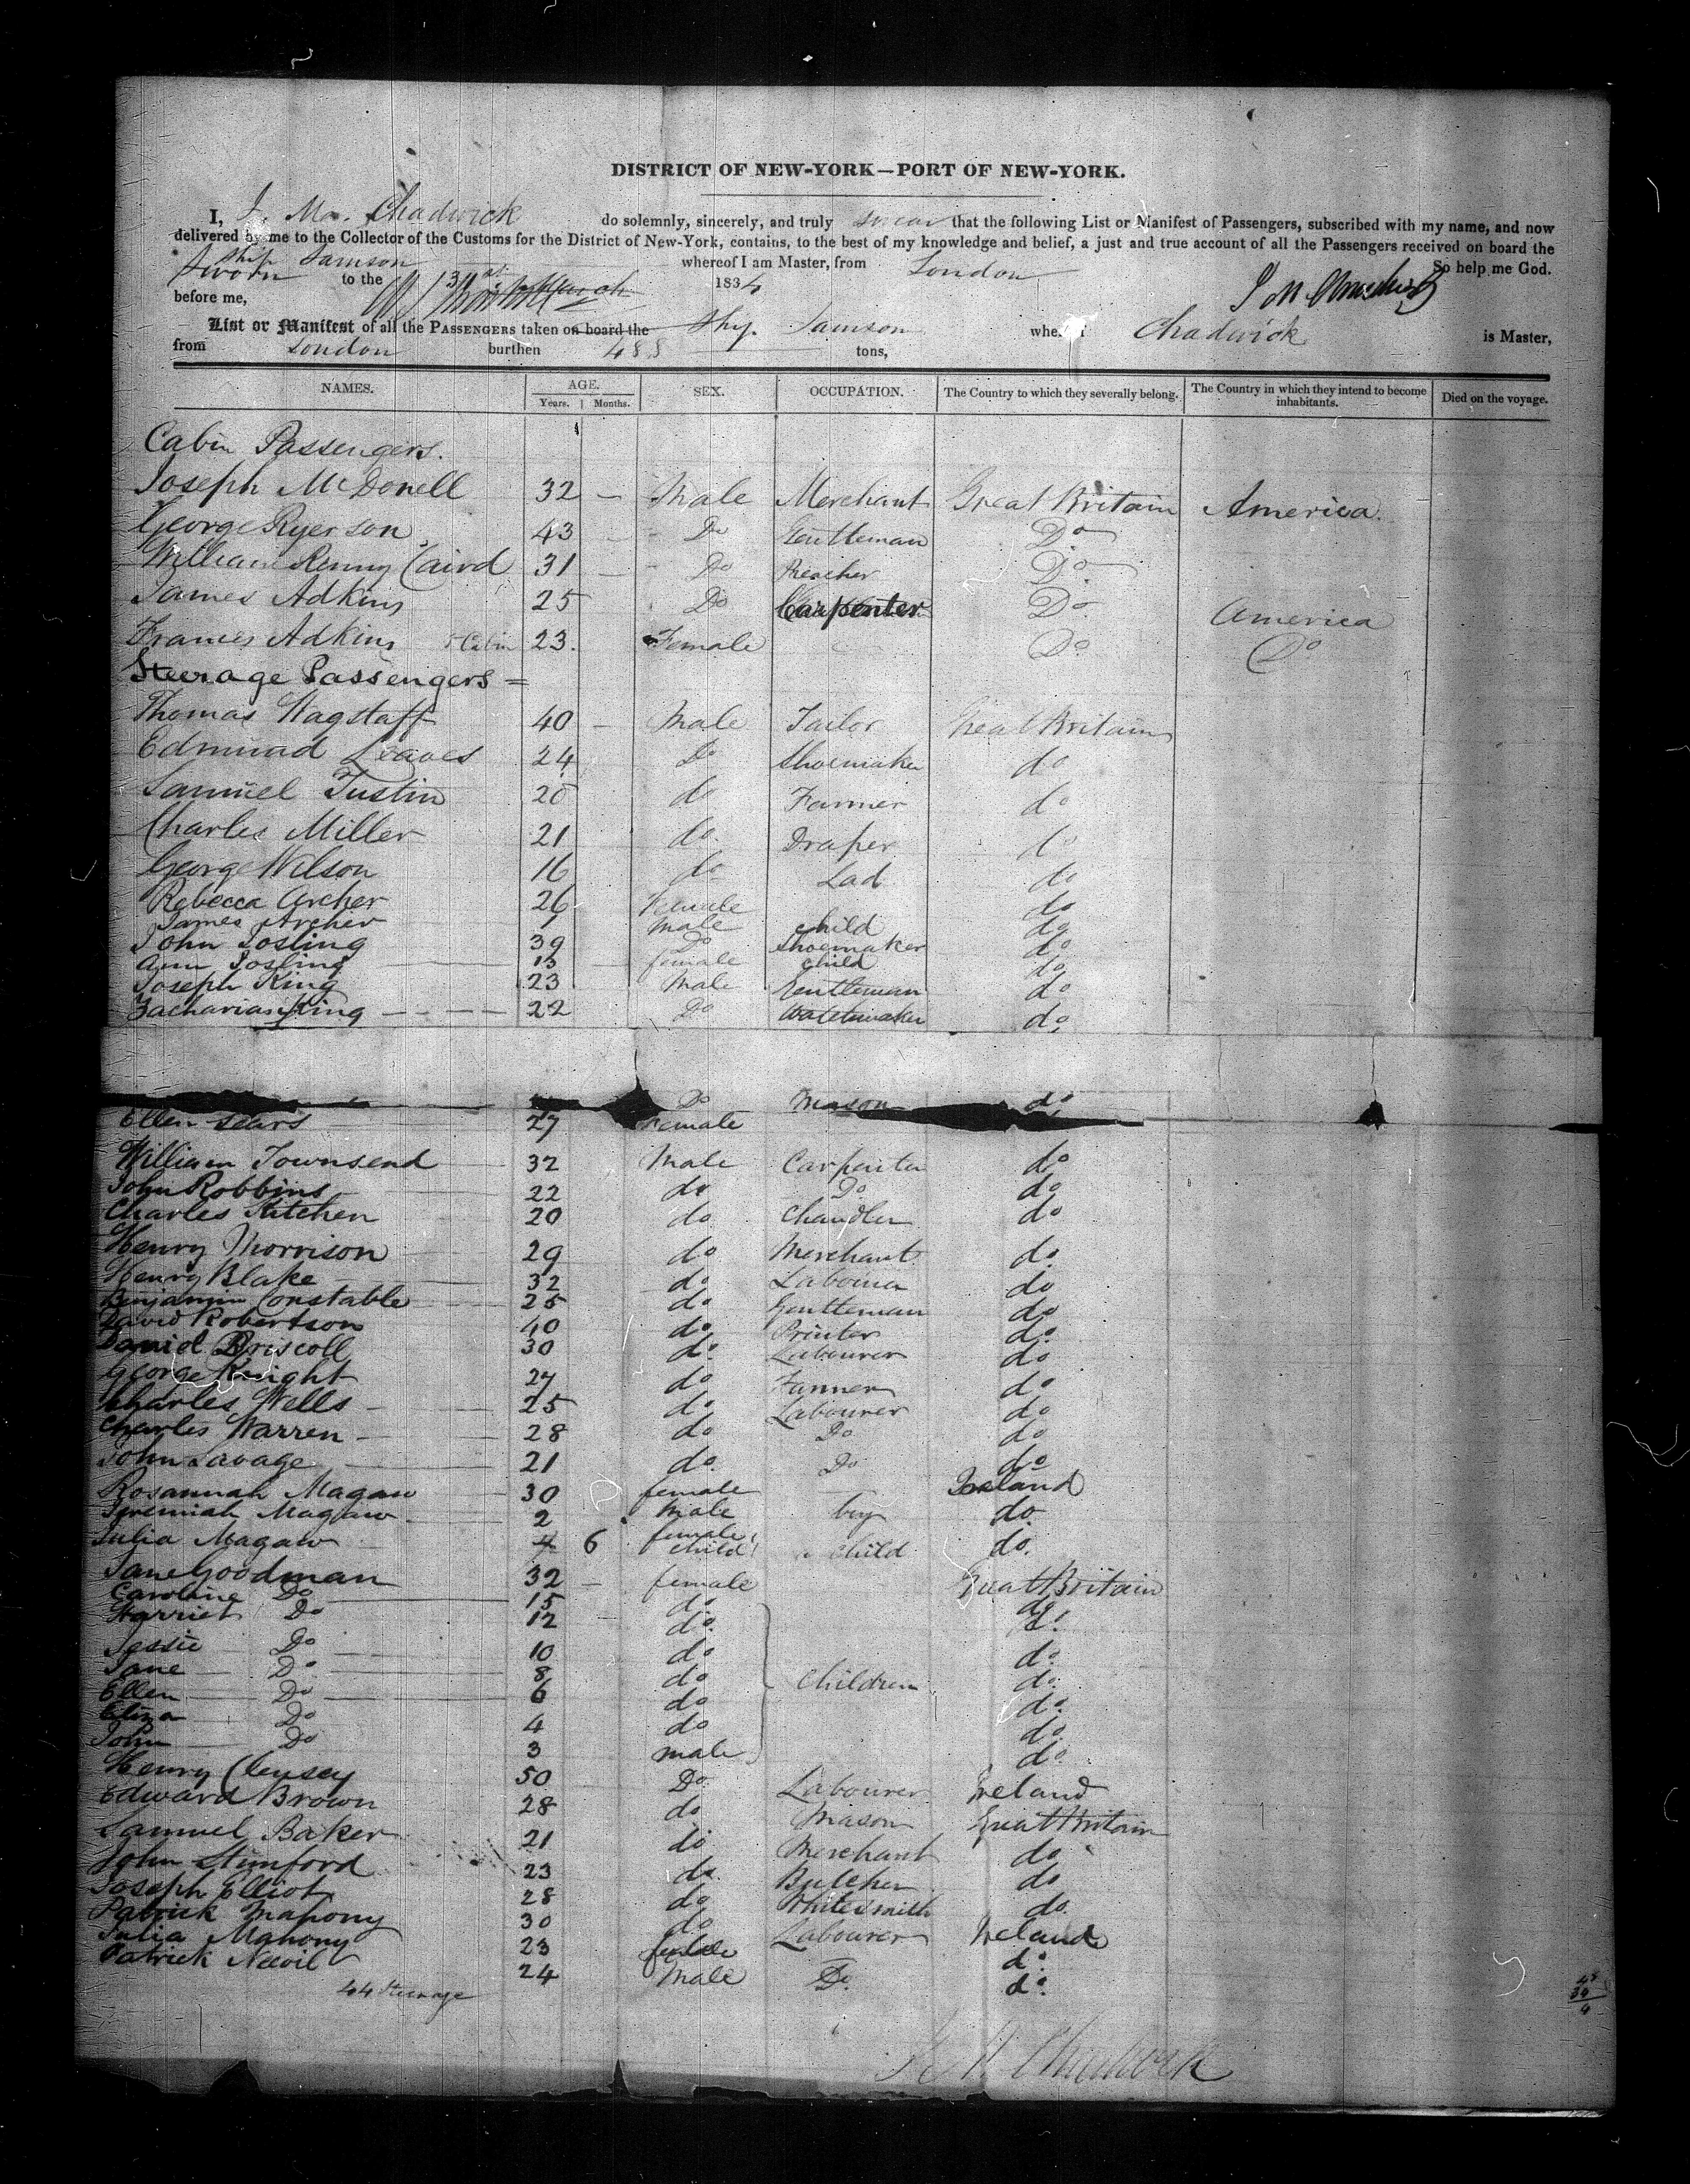 DISTRICT OF NEW-YORK—PORT OF NEW-YORK.
I, J. M. Chadwick do solemnly, sincerely, and truly swear that the following List or Manifest of Passengers, subscribed with my name, and now
delivered by me to the Collector of the Customs for the District of New-York, contains, to the best of my knowledge and belief, a just and true account of all the Passengers received on board the
Ship Samson whereof I am Master, from London So help me God.
Sworn to the 31st March 1834
before me,
List or Manifest of all the PASSENGERS taken on board the Ship Samson whereof Chadwick is Master,
from London burthen 488 tons,
NAMES. AGE. SEX. OCCUPATION. The Country to which they severally belong. The Country in which they intend to become inhabitants. Died on the voyage.
Years. Months.
Cabin Passengers.
Joseph McDonell 32 — Male Merchant Great Britain America.
George Ryerson 43 — Do Gentleman Do
William Renny Caird 31 — Do Preacher Do
James Adkins 25 Do Carpenter Do America
Frances Adkins 5 Cabin 23. Female Do Do
Steerage Passengers =
Thomas Wagstaff 40 — Male Tailor Great Britain
Edmund Leaves 24 Do Shoemaker do
Samuel Tustin 20 do Farmer do
Charles Miller 21 do Draper do
George Wilson 16 do Lad do
Rebecca Archer 26 Female do
James Archer 1 male child do
John Josling 39 Do Shoemaker do
Ann Josling 13 female child do
Joseph King 23 Male Gentleman do
Zachariah King 22 Do Watchmaker do
Do Mason do
Ellen Sears 27 Female
William Townsend 32 Male Carpenter do
John Robbins 22 do Do do
Charles Kitchen 20 do Chandler do
Henry Morrison 29 do Merchant do
Henry Blake 32 do Labourer do
Benjamin Constable 25 do Gentleman do
David Robertson 40 do Printer do
Daniel Driscoll 30 do Labourer do
George Knight 27 do Farmer do
Charles Wells 25 do Labourer do
Charles Warren 28 do Do do
John Savage 21 do Do do
Rosannah Magaw 30 female Ireland
Jeremiah Magaw 2 Male boy do
Julia Magaw 6 female child a child do
Jane Goodman 32 — female Great Britain
Caroline Do 15 do do
Harriet Do 12 do do
Jessie Do 10 do do
Jane Do 8 do Children do
Ellen Do 6 do do
Eliza Do 4 do do
John Do 3 male do
Henry Clensey 50 Do Labourer Ireland
Edward Brown 28 do Mason Great Britain
Samuel Baker 21 do Merchant do
John Stimford 23 do Butcher do
Joseph Elliot 28 do Whitesmith do
Patrick Mahony 30 do Labourer Ireland
Julia Mahony 23 female do
Patrick Neevil 24 Male Do do
44 Steerage